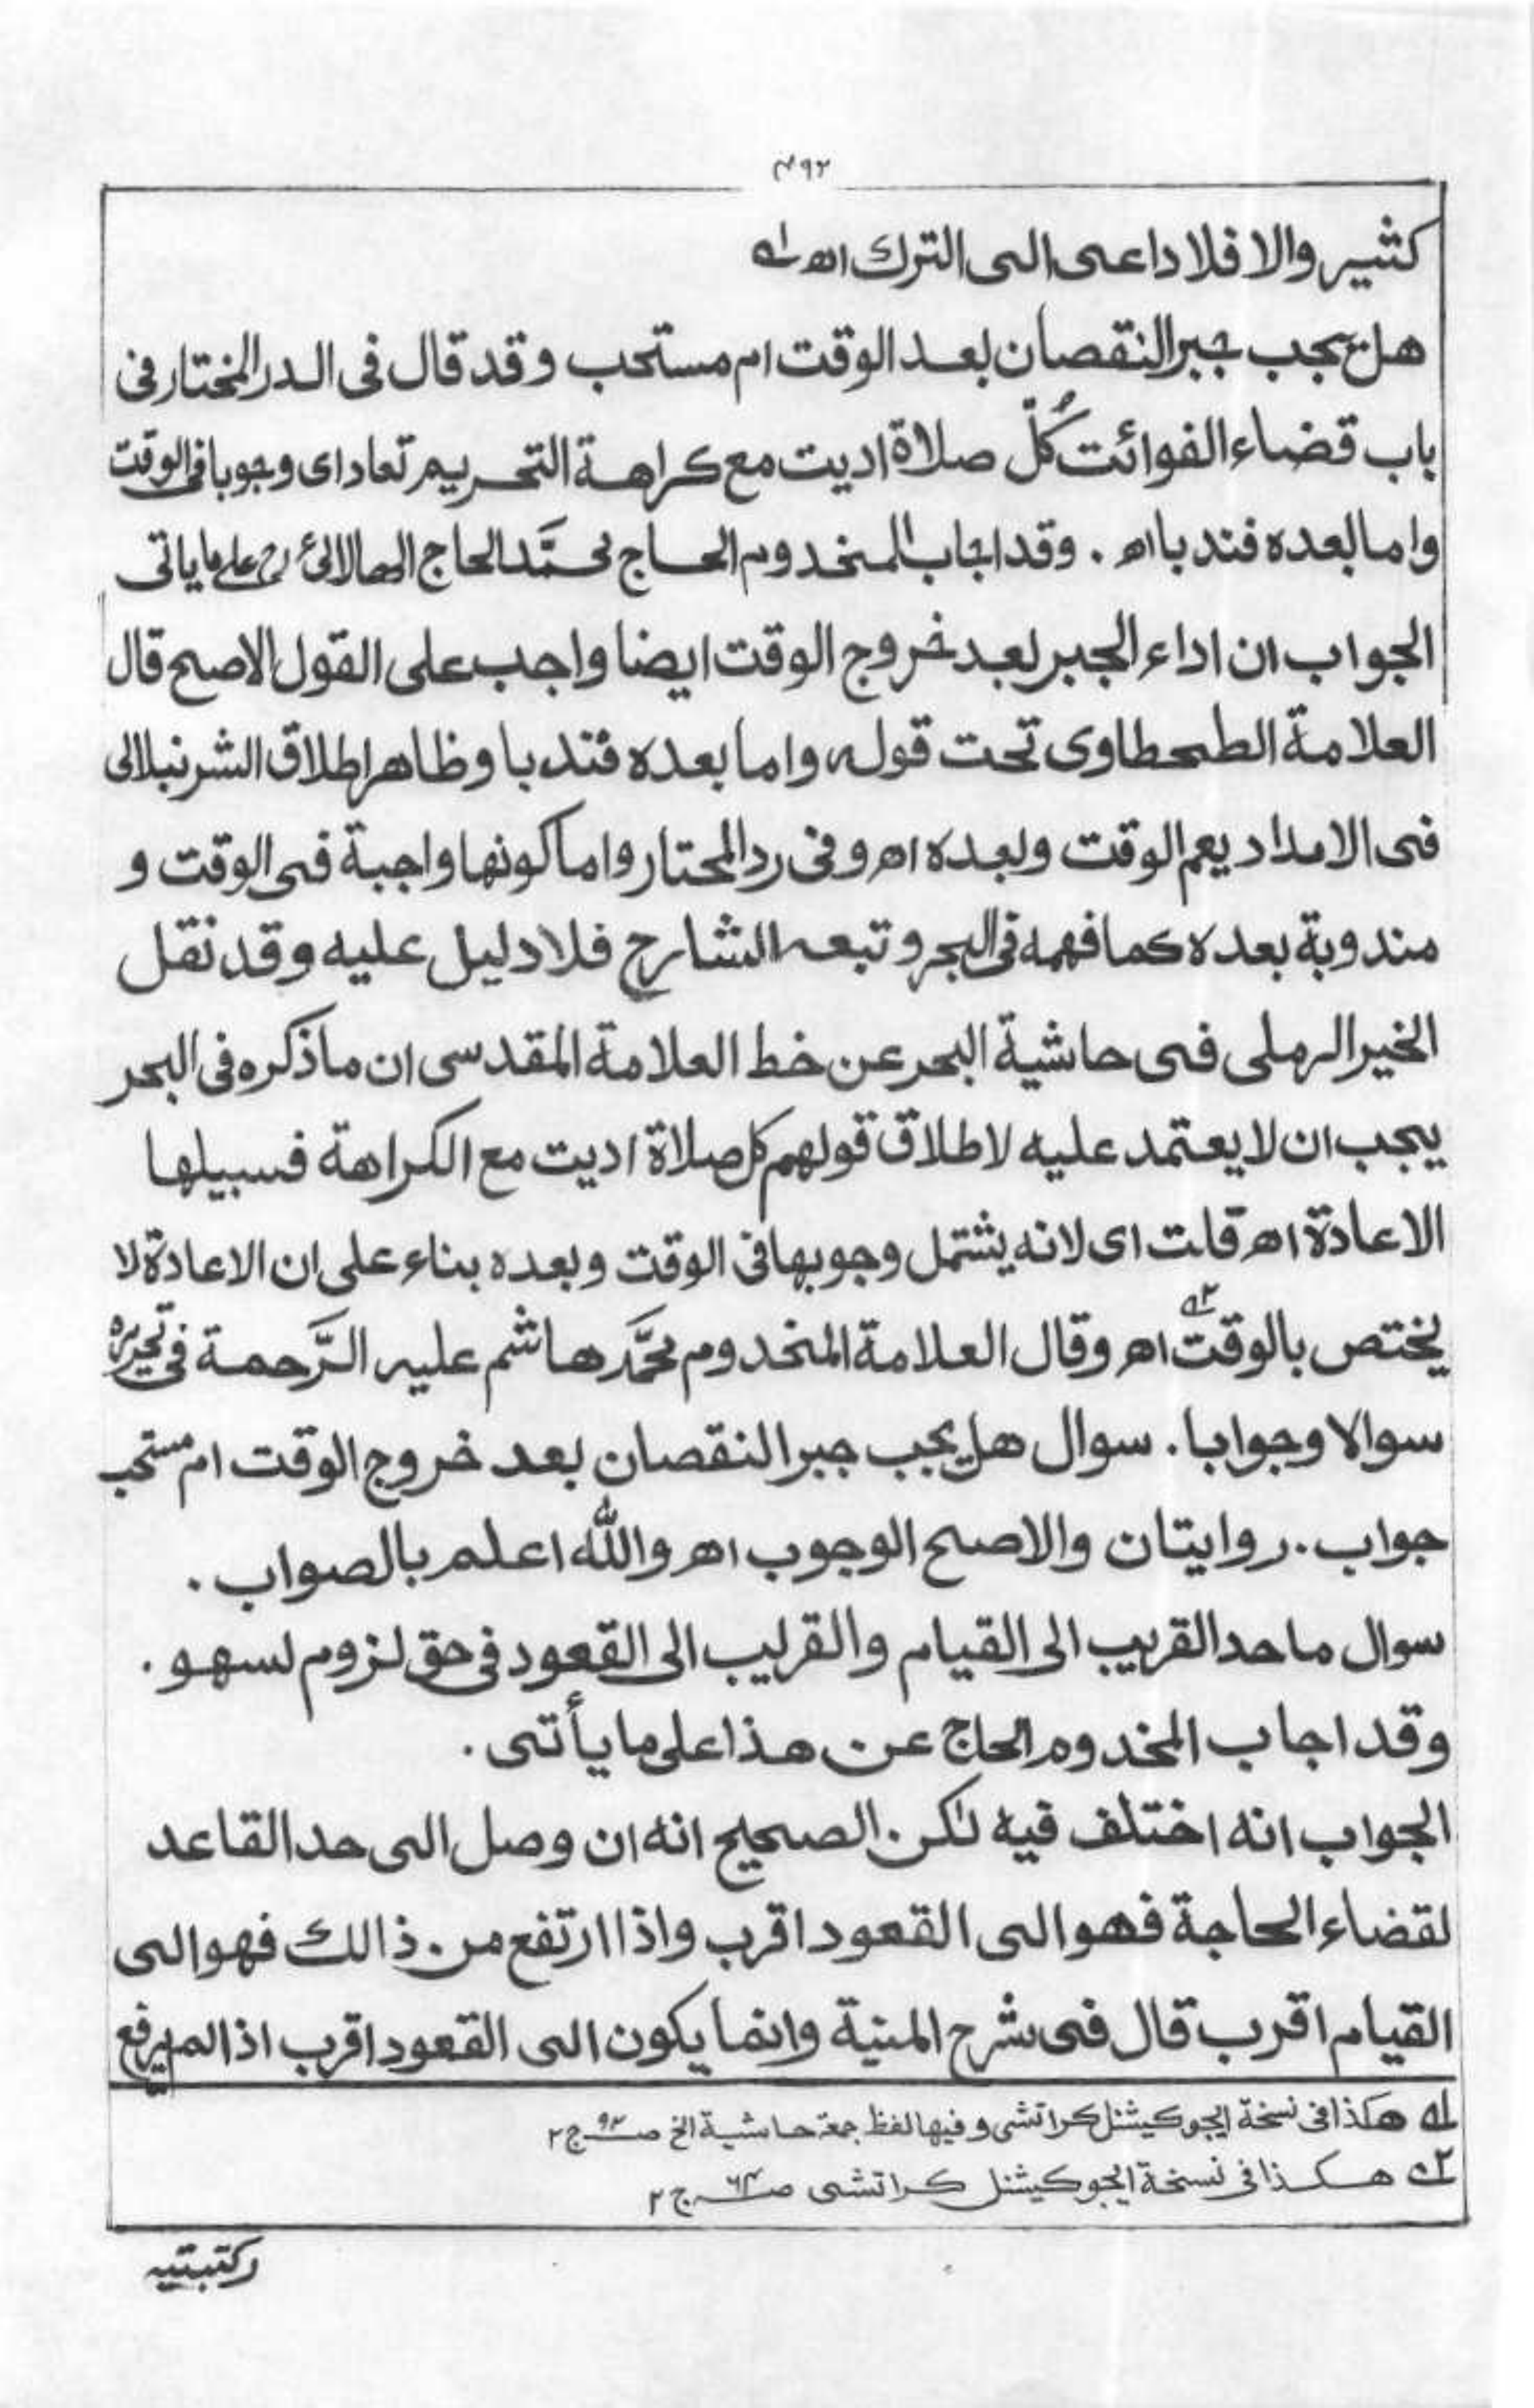 ۴۹۲
كثير والا فلا داعى الى الترك اھ لہ
هل يجب جبر النقصان بعد الوقت ام مستحب وقد قال فى الدر المختار فى
باب قضاء الفوائت كُلّ صلاة اديت مع كراهة التحريم تعاد اى وجوبا فى الوقت
واما بعده فندبا اھ . وقد اجاب المخدوم الحاج محمَّد الحاج على ما ياتى
الجواب ان اداء الجبر بعد خروج الوقت ايضا واجب على القول الاصح قال
العلامة الطحطاوى تحت قوله واما بعده فندبا وظاهر اطلاق الشرنبلالى
فى الامداد يعم الوقت وبعده اھ وفى رد المحتار واما كونها واجبة فى الوقت و
مندوبة بعده كما فهمه فى البحر وتبعه الشارح فلا دليل عليه وقد نقل
الخير الرملى فى حاشية البحر عن خط العلامة المقدسى ان ما ذكره فى البحر
يجب ان لا يعتمد عليه لاطلاق قولهم كل صلاة اديت مع الكراهة فسبيلها
الاعادة اھ قلت اى لانه يشتمل وجوبها فى الوقت وبعده بناء على ان الاعادة لا
يختص بالوقت ۲ہ اھ وقال العلامة المخدوم محمَّد هاشم عليه الرَّحمة فى تحريره
سوالا وجوابا . سوال هل يجب جبر النقصان بعد خروج الوقت ام مستحب
جواب . روايتان والاصح الوجوب اھ والله اعلم بالصواب .
سوال ما حد القريب الى القيام والقريب الى القعود فى حق لزوم لسهو .
وقد اجاب المخدوم الحاج عن هذا على ما يأتى .
الجواب انه اختلف فيه لٰكن الصحيح انه ان وصل الى حد القاعد
لقضاء الحاجة فهو الى القعود اقرب واذا ارتفع من ذالك فهو الى
القيام اقرب قال فى شرح المنية وانما يكون الى القعود اقرب اذا لم يرفع
لہ هكذا فى نسخة ايجوكيشنل كراتشى وفيها لفظ جمة حاشية الخ صـ۹۲ ج۲
۲ہ هكذا فى نسخة ايجوكيشنل كراتشى صـ۶۴ ج۲
ركبتيه